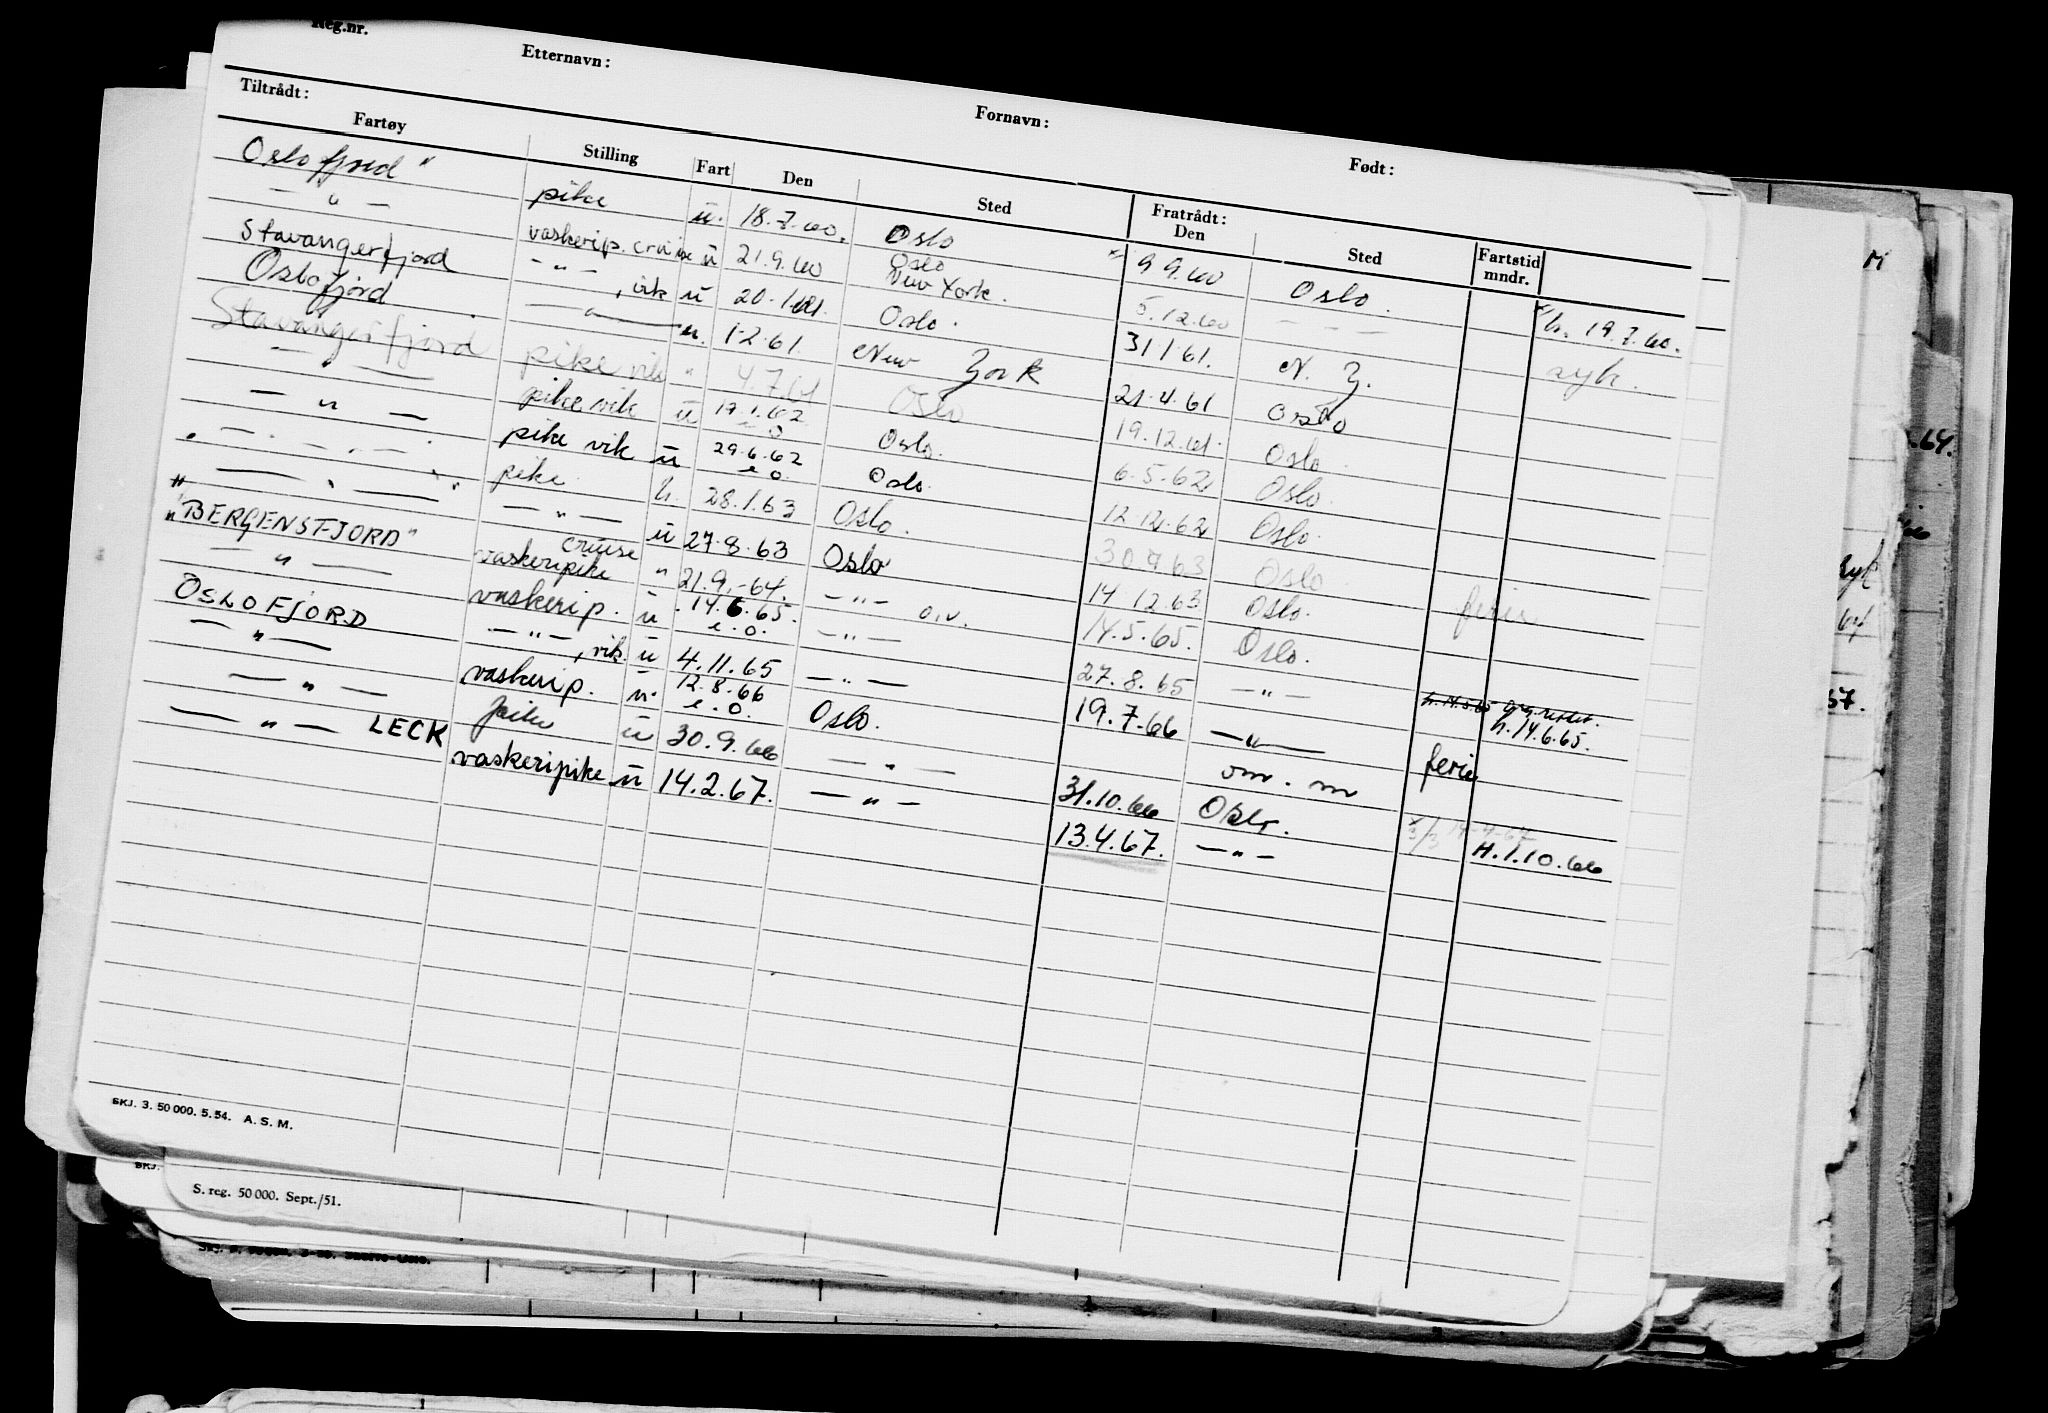 Reg.nr.
Etternavn:
Fornavn:
Født:
Tiltrådt:
Fratrådt:
Fartøy Stilling Fart Den Sted Den Sted Fartstid mndr.
Oslofjord" pike u. 18.7.60. Oslo 9 9.60 Oslo. h. 19.7.60.
— " — vaskerip. cruise u 21.9.60 Oslo New York. 5.12.60 — — — syk.
Stavangerfjord — " — , vik u 20.1.61. Oslo. 31 1 61. N. Y.
Oslofjord — " — u. 1.2.61. New York 21.4.61 Oslo
Stavangerfjord pike vik " 4.7.61 Oslo 19.12.61. Oslo.
— " — pike vik u 19.1.62 e o Oslo. 6.5.62 Oslo.
— " — pike vik u 29.6.62 e o. Oslo. 12.12.62 Oslo.
" — . — . — " pike. h. 28.1.63 Oslo. 30 7 63 Oslo.
— " — — " — u 27.8.63 Oslo 14 12.63 Oslo. ferie
"BERGENSFJORD" cruise vaskeripike " 21.9.-64. — " — o.v. 14.5.65. Oslo.
— " — vaskerip. u . 14.6.65. e.o. — " — 27.8.65 — " — h. 14.5.65 h. 14.6.65.
OSLOFJORD — " —, vik. u 4.11.65 — " — 19.7.66 — " — ferie
— " — vaskerip. u. 12.8.66 e.o. Oslo. om. m
— " — pike u 30.9.66 — " — 31.10.66 Oslo. H.1.10.66
— " — LECK vaskeripike u 14.2.67. — " — 13.4.67. — " —
SKJ. 3. 50 000. 5. 54. A. S. M.
SKJ.
S. reg. 50 000. Sept./51.
.64.